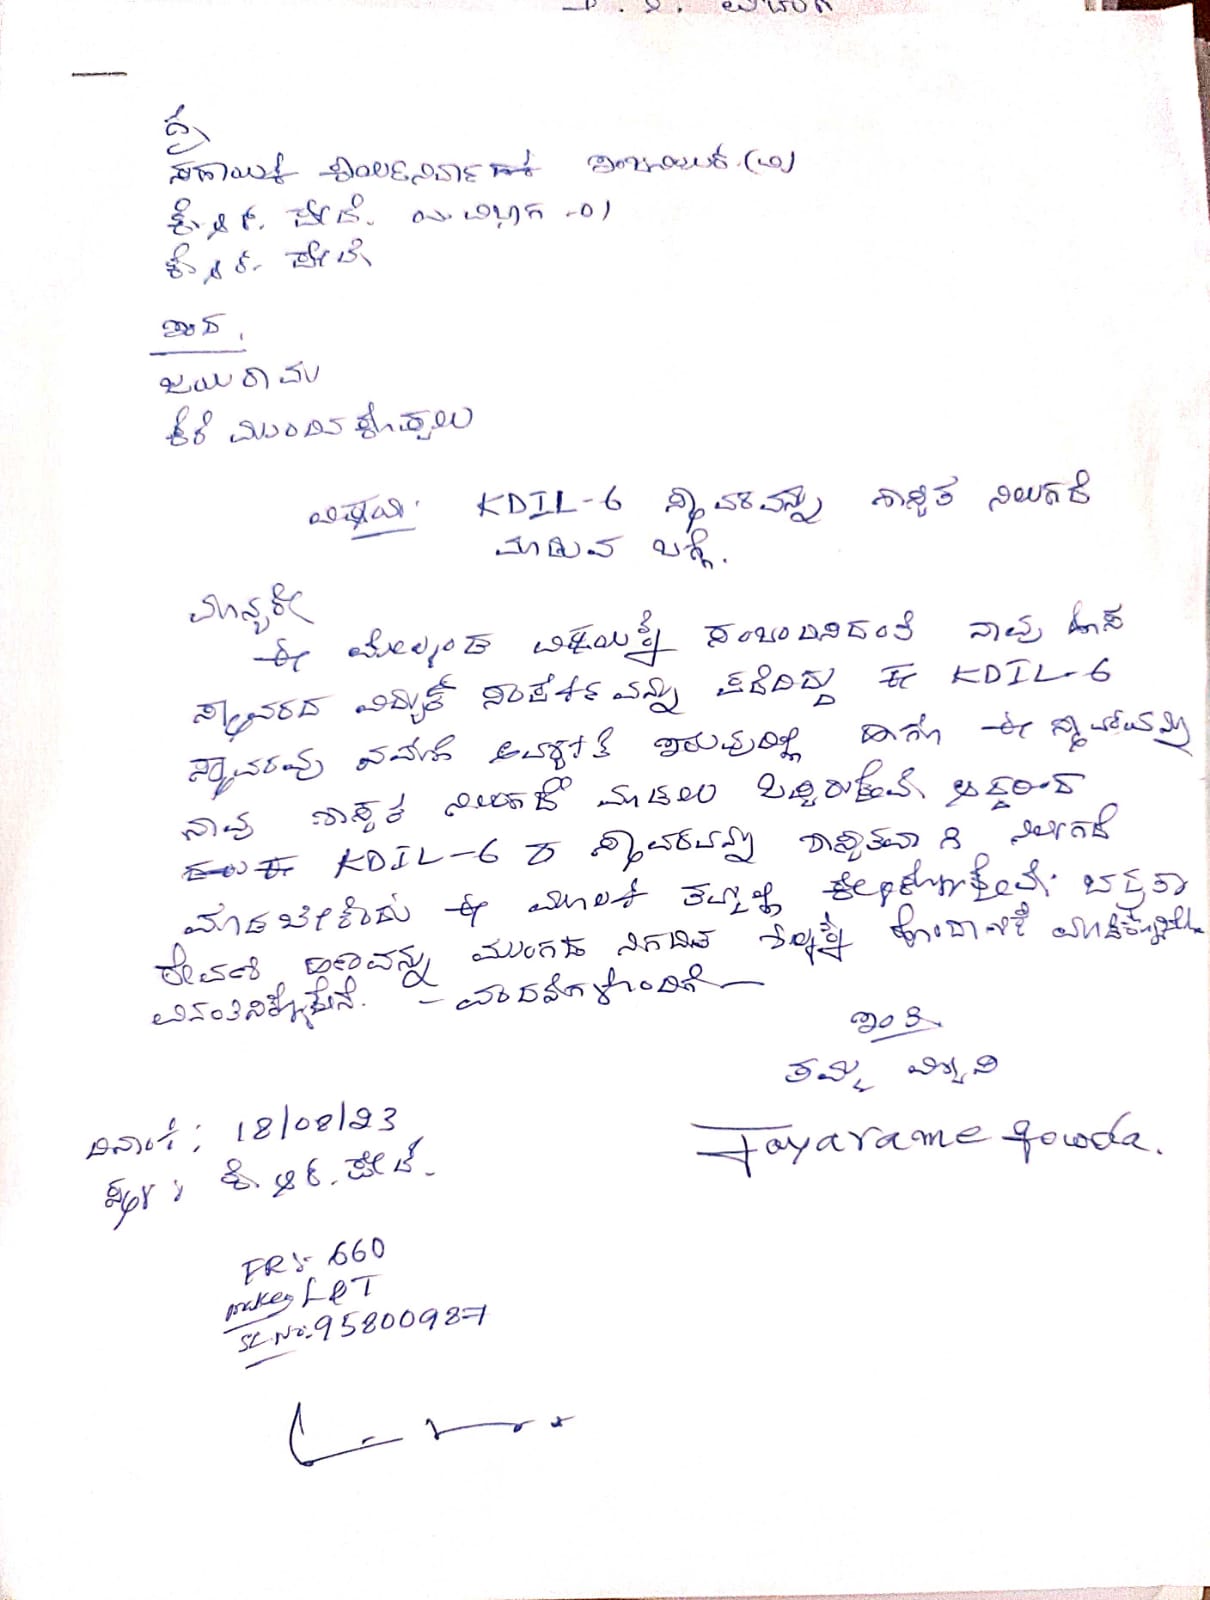 ರವರಿಗೆ
ಸಹಾಯಕ ಕಾರ್ಯನಿರ್ವಾಹಕ ಇಂಜಿನಿಯರ್ (ವಿ)
ಕೆ.ಆರ್. ಪೇಟೆ. ಉಪ ವಿಭಾಗ -01
ಕೆ.ಆರ್. ಪೇಟೆ
ಇಂದ,
ಜಯರಾಮು
ಕೆರೆ ಮುಂದಿನ ಕೊಪ್ಪಲು
ವಿಷಯ: KDIL-6 ಸ್ಥಾವರವನ್ನು ಶಾಶ್ವತ ನಿಲುಗಡೆ
ಮಾಡುವ ಬಗ್ಗೆ.
ಮಾನ್ಯರೇ
ಈ ಮೇಲ್ಕಂಡ ವಿಷಯಕ್ಕೆ ಸಂಬಂದಿಸಿದಂತೆ ನಾವು ಹೊಸ
ಸ್ಥಾವರದ ವಿದ್ಯುತ್ ಸಂಪರ್ಕವನ್ನು ಪಡೆದಿದ್ದು ಈ KDIL-6
ಸ್ಥಾವರವು ನಮಗೆ ಅವಶ್ಯಕತೆ ಇರುವುದಿಲ್ಲ ಹಾಗೂ ಈ ಸ್ಥಾವರವನ್ನು
ನಾವು ಶಾಶ್ವತ ನಿಲುಗಡೆ ಮಾಡಲು ಒಪ್ಪಿರುತ್ತೇವೆ ಆದ್ದರಿಂದ
KDIL-6 ರ ಸ್ಥಾವರವನ್ನು ಶಾಶ್ವತವಾಗಿ ನಿಲುಗಡೆ
ಮಾಡಬೇಕೆಂದು ಈ ಮೂಲಕ ತಮ್ಮಲ್ಲಿ ಕೇಳಿಕೊಳ್ಳುತ್ತೇವೆ. ಭದ್ರತಾ
ಠೇವಣಿ ಹಣವನ್ನು ಮುಂಗಡ ನಿಗದಿತ ಶುಲ್ಕಕ್ಕೆ ಹೊಂದಾಣಿಕೆ
ವಿನಂತಿಸಿಕೊಳ್ಳುತ್ತೇನೆ. - ವಂದನೆಗಳೊಂದಿಗೆ -
ಇಂತಿ
ತಮ್ಮ ವಿಶ್ವಾಸಿ
Jayarame gowda.
ದಿನಾಂಕ: 18/08/23
ಸ್ಥಳ: ಕೆ.ಆರ್.ಪೇಟೆ.
FR:- 660
make LET
SL.No:-95800987